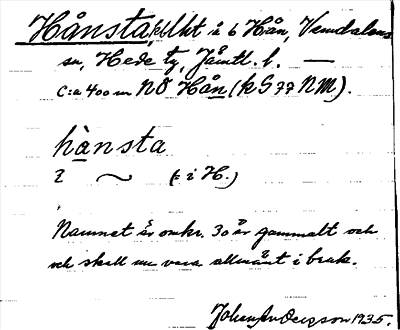 Hånsta, lht i 6 Hån, Vemdalens
sn, Hede tg, Jämtl. l. —
C:a 400 m NÖ Hån (k G 77 NM).
hànsta
i ~ (: i H.)
Namnet är omkr. 30 år gammalt och
och skall nu vara allmänt i bruk.
Johan Anderson 1935.